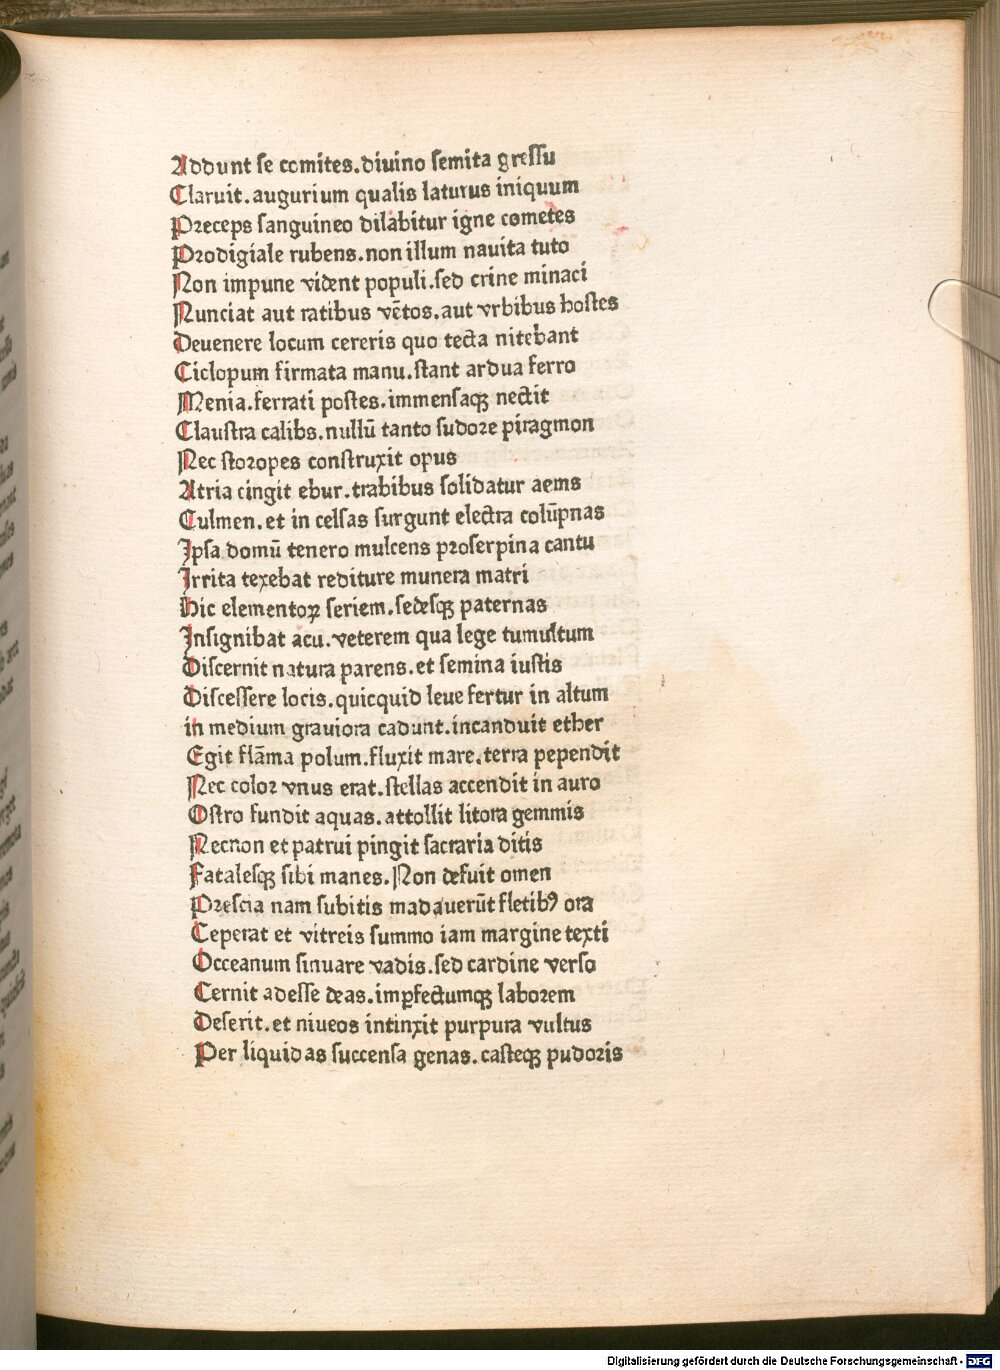 Addunt se comites.diuino semita gressu
Claruit.augurium qualis laturus iniquum
Preceps sanguineo dilabitur igne cometes
Prodigiale rubens.non illum nauita tuto
Non impune vident populi.sed crine minaci
Nunciat aut ratibus vētos.aut vrbibus hostes
Deuenere locum cereris quo tecta nitebant
Ciclopum firmata manu.stant ardua ferro
Menia.ferrati postes.immensaqꝫ nectit
Claustra calibs.nullū tanto sudore piragmon
Nec storopes construxit opus
Atria cingit ebur.trabibus solidatur aems
Culmen.et in celsas surgunt electra colūpnas
Ipsa domū tenero mulcens proserpina cantu
Irrita texebat rediture munera matri
Hic elementoꝝ seriem.sedesqꝫ paternas
Insignibat acu.veterem qua lege tumultum
Discernit natura parens.et semina iustis
Discessere locis.quicquid leue fertur in altum
in medium grauiora cadunt.incanduit ether
Egit flāma polum.fluxit mare.terra pependit
Nec color vnus erat.stellas accendit in auro
Ostro fundit aquas.attollit litora gemmis
Necnon et patrui pingit sacraria ditis
Fatalesqꝫ sibi manes.Non defuit omen
Prescia nam subitis madauerūt fletibꝰ ora
Ceperat et vitreis summo iam margine texti
Occeanum sinuare vadis.sed cardine verso
Cernit adesse deas.imꝑfectumqꝫ laborem
Deserit.et niueos intinxit purpura vultus
Per liquidas succensa genas.casteqꝫ pudoris
Digitalisierung gefördert durch die Deutsche Forschungsgemeinschaft - DFG